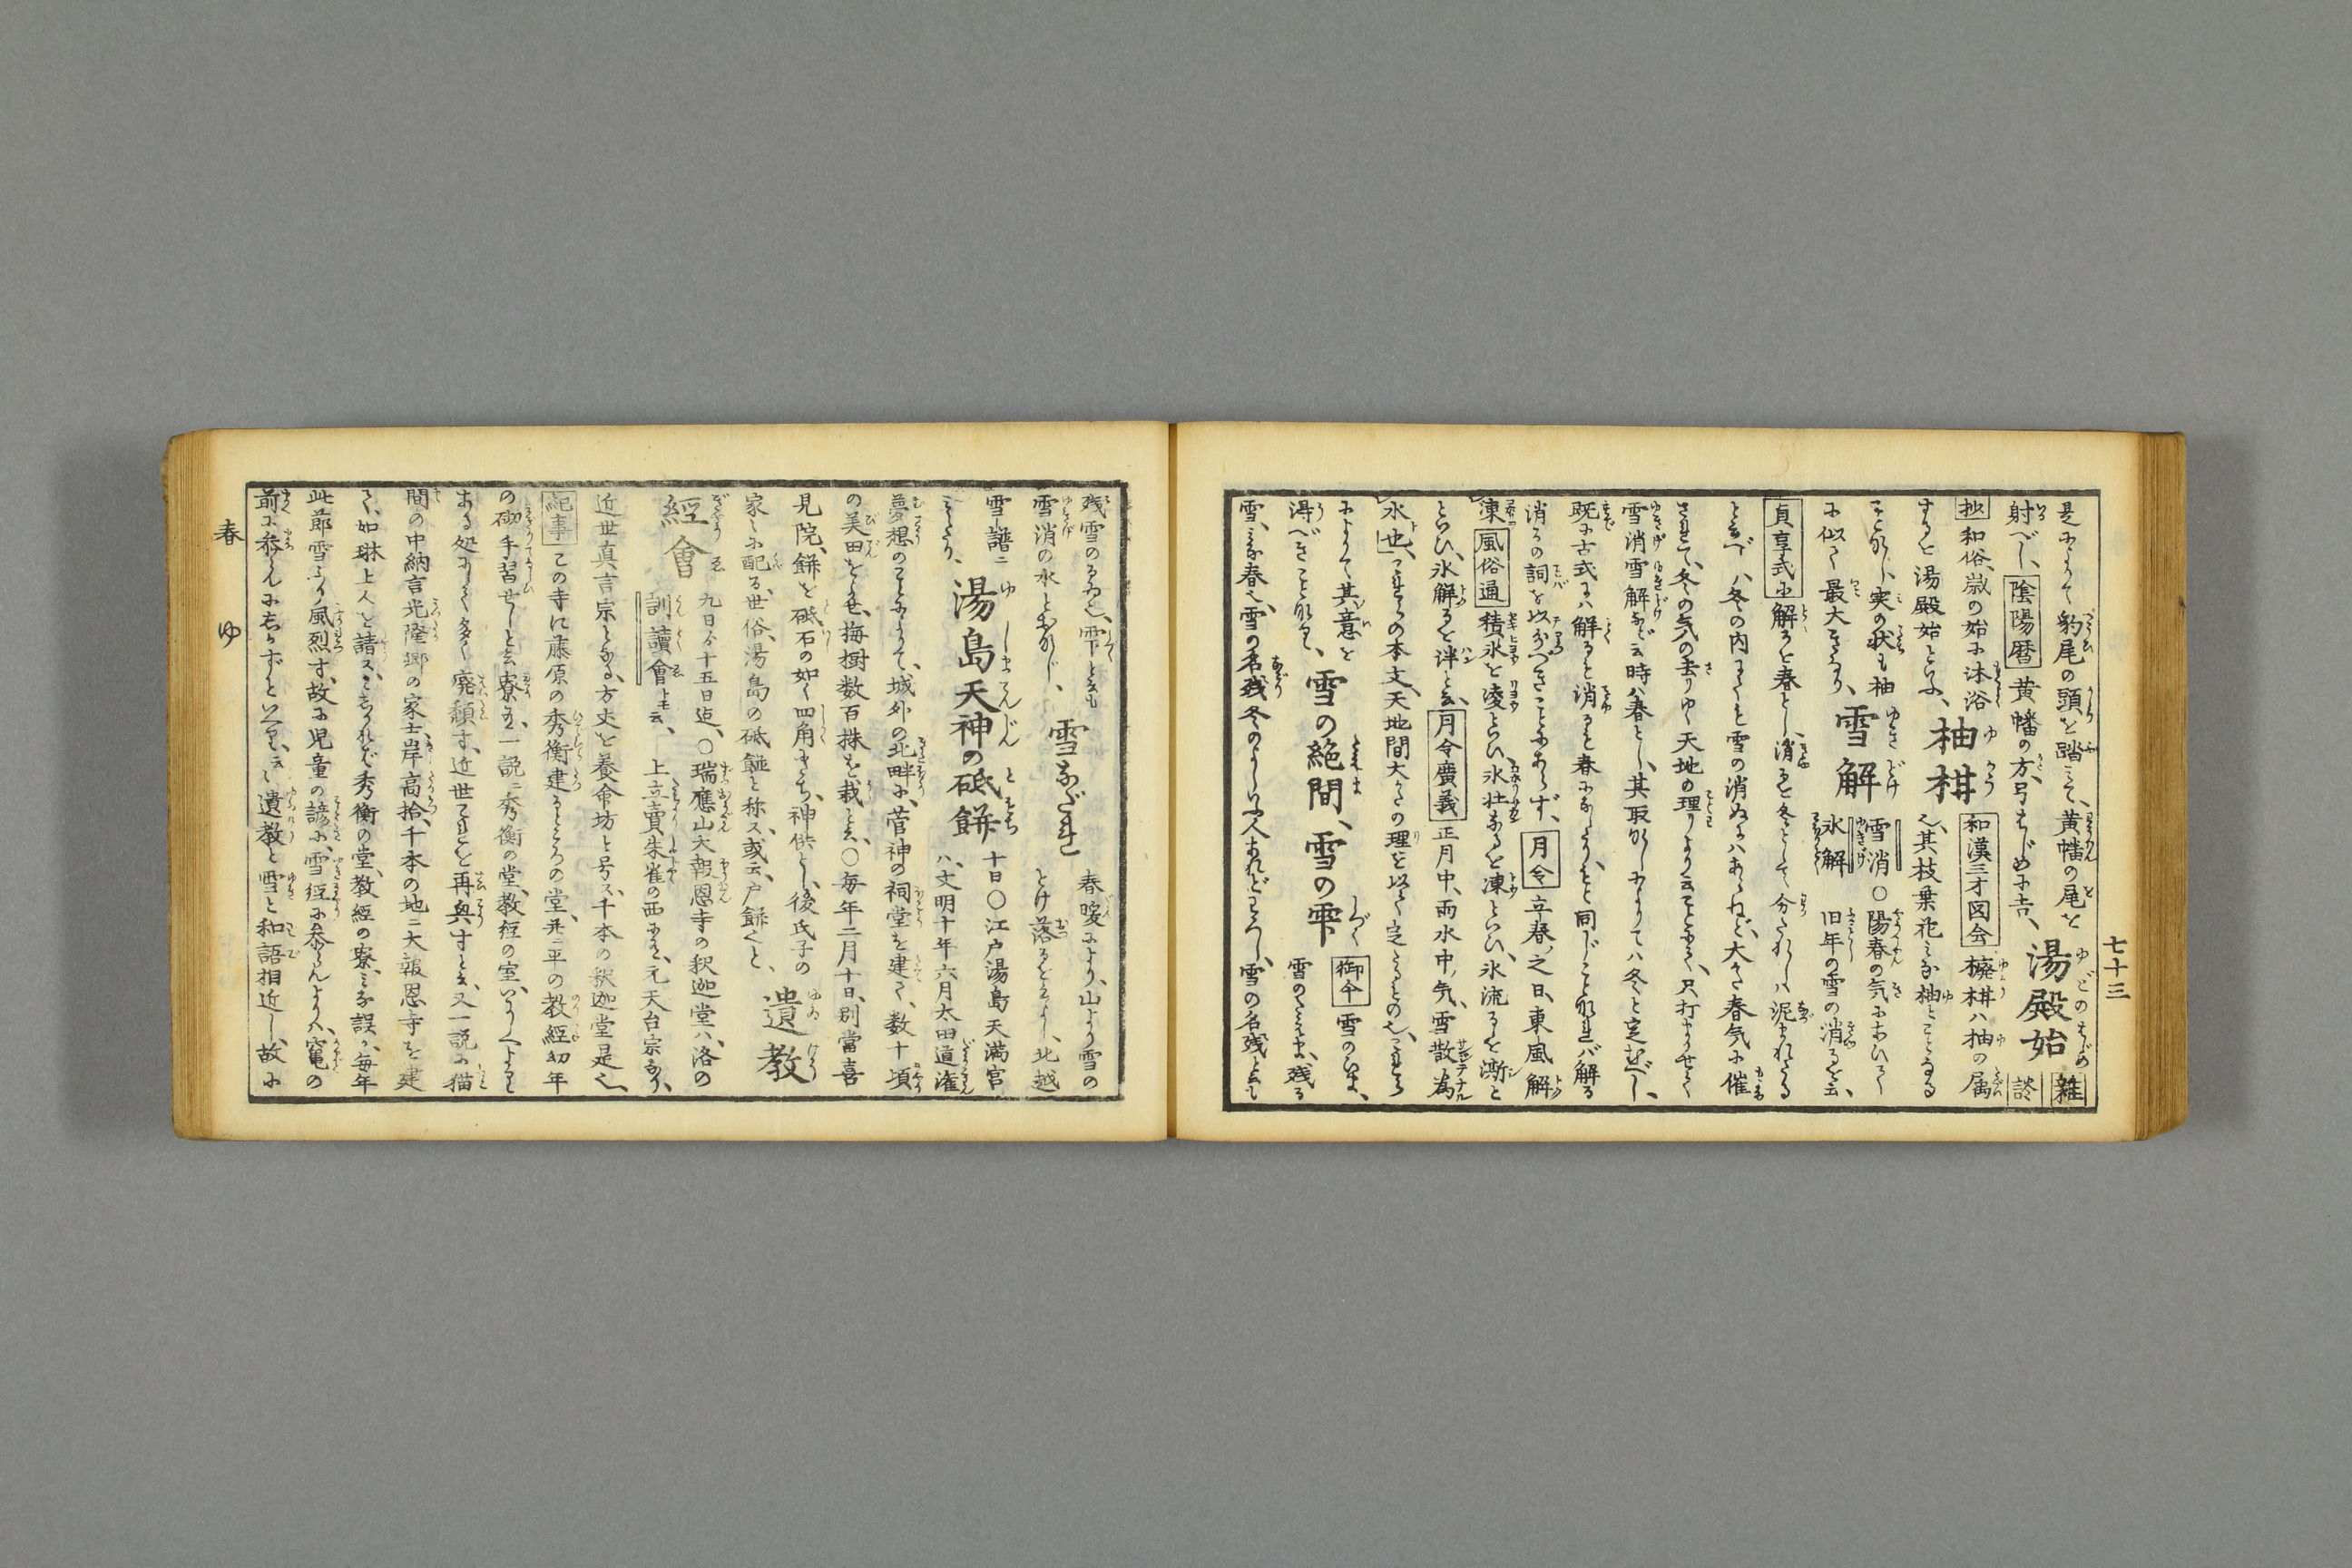 七十三
是によりて豹尾の頭を踏みて、黄幡の尾を
射べし、陰陽暦 黄幡の方、弓はじめに吉、湯殿始 雑談
抄 和俗、歳の始に沐浴
するを湯殿始といふ、柚柑 和漢三才図会 柑ハ柚の属
也、其枝葉花みな柚とことなる
ことなし、実の状も柚
に似て最大きなり、雪解 雪消 氷解 〇陽春の気におひて
旧年の雪の消るを云、
貞享式に解るを春とし、消るを冬として分たれしハ泥まれたる
といふべし、冬の内にても雪の消ぬにハあらねど、大かた春気に催
されて、冬の気の去りゆく天地の理りより云ことなり、只打まかせて
雪消雪解など云時ハ春とし、其取なしによりてハ冬と定むべし、
既に古式にハ解ると消るを春になしたり、もと同じことなれバ解る
消るの詞を以分べきことにあらず、月令 立春ノ之日、東風解
凍 風俗通 積氷を凌といひ、氷壮なるを凍といひ、氷流るを澌と
といひ、氷解るを泮と云、月令廣義 正月中、雨水中ノ気、雪散為
水也、これらの本文、天地間大かたの理を以て定たるもの也、これら
によりて其意を
得べきことなり、雪の絶間、雪の雫 御傘 雪のひま、
雪のたえま、残る
雪、みな春也、雪の名残冬のよしいふ人あれどわろし、雪の名残と云も
残雪のるゐ也、雪下と云も
雪消の水と同じ、雪なだれ 春暖により、山より雪の
とけ落るをいふよし、北越
雪譜ニ
みえたり、湯島天神の砥餅 十日〇江戸湯島天満宮
ハ、文明十年六月太田道潅
夢想のことによりて、城外の北畔に、菅神の祠堂を建て、数十頃
の美田をよせ、梅樹数百株を栽と云、〇毎年二月十日、別當喜
見院、餅を砥石の如く四角にきり、神供とし、後氏子の
家々に配る、世俗、湯島の砥餅と称ス、或云、戸餅也と、遺教
經會 九日ゟ十五日迄、〇瑞應山大報恩寺の釈迦堂ハ、洛の
訓讀會とも云、上立賣朱雀の西にて、元天台宗なり、
近世真言宗となる、方丈を養命坊と号ス、千本の釈迦堂是也、
紀事 この寺に藤原の秀衡建るところの堂、并ニ平の教經幼年
の砌手習せしと云寮有、一説ニ秀衡の堂、教經の室、いにしへより
ある処にして、多く廃頽す、近世これを再興すと云、又一説に猫
間の中納言光隆卿の家士、岸高拾、千本の地ニ大報恩寺を建
て、如琳上人を請ス、しかれバ秀衡の堂、教經の寮、みな誤か、毎年
此節雪ふり風烈す、故に児童の諺に、雪経に参らんより、竃の
前に参らんにしかずといへり、云々遺教と雪と和語相近し、故に
春 ゆ